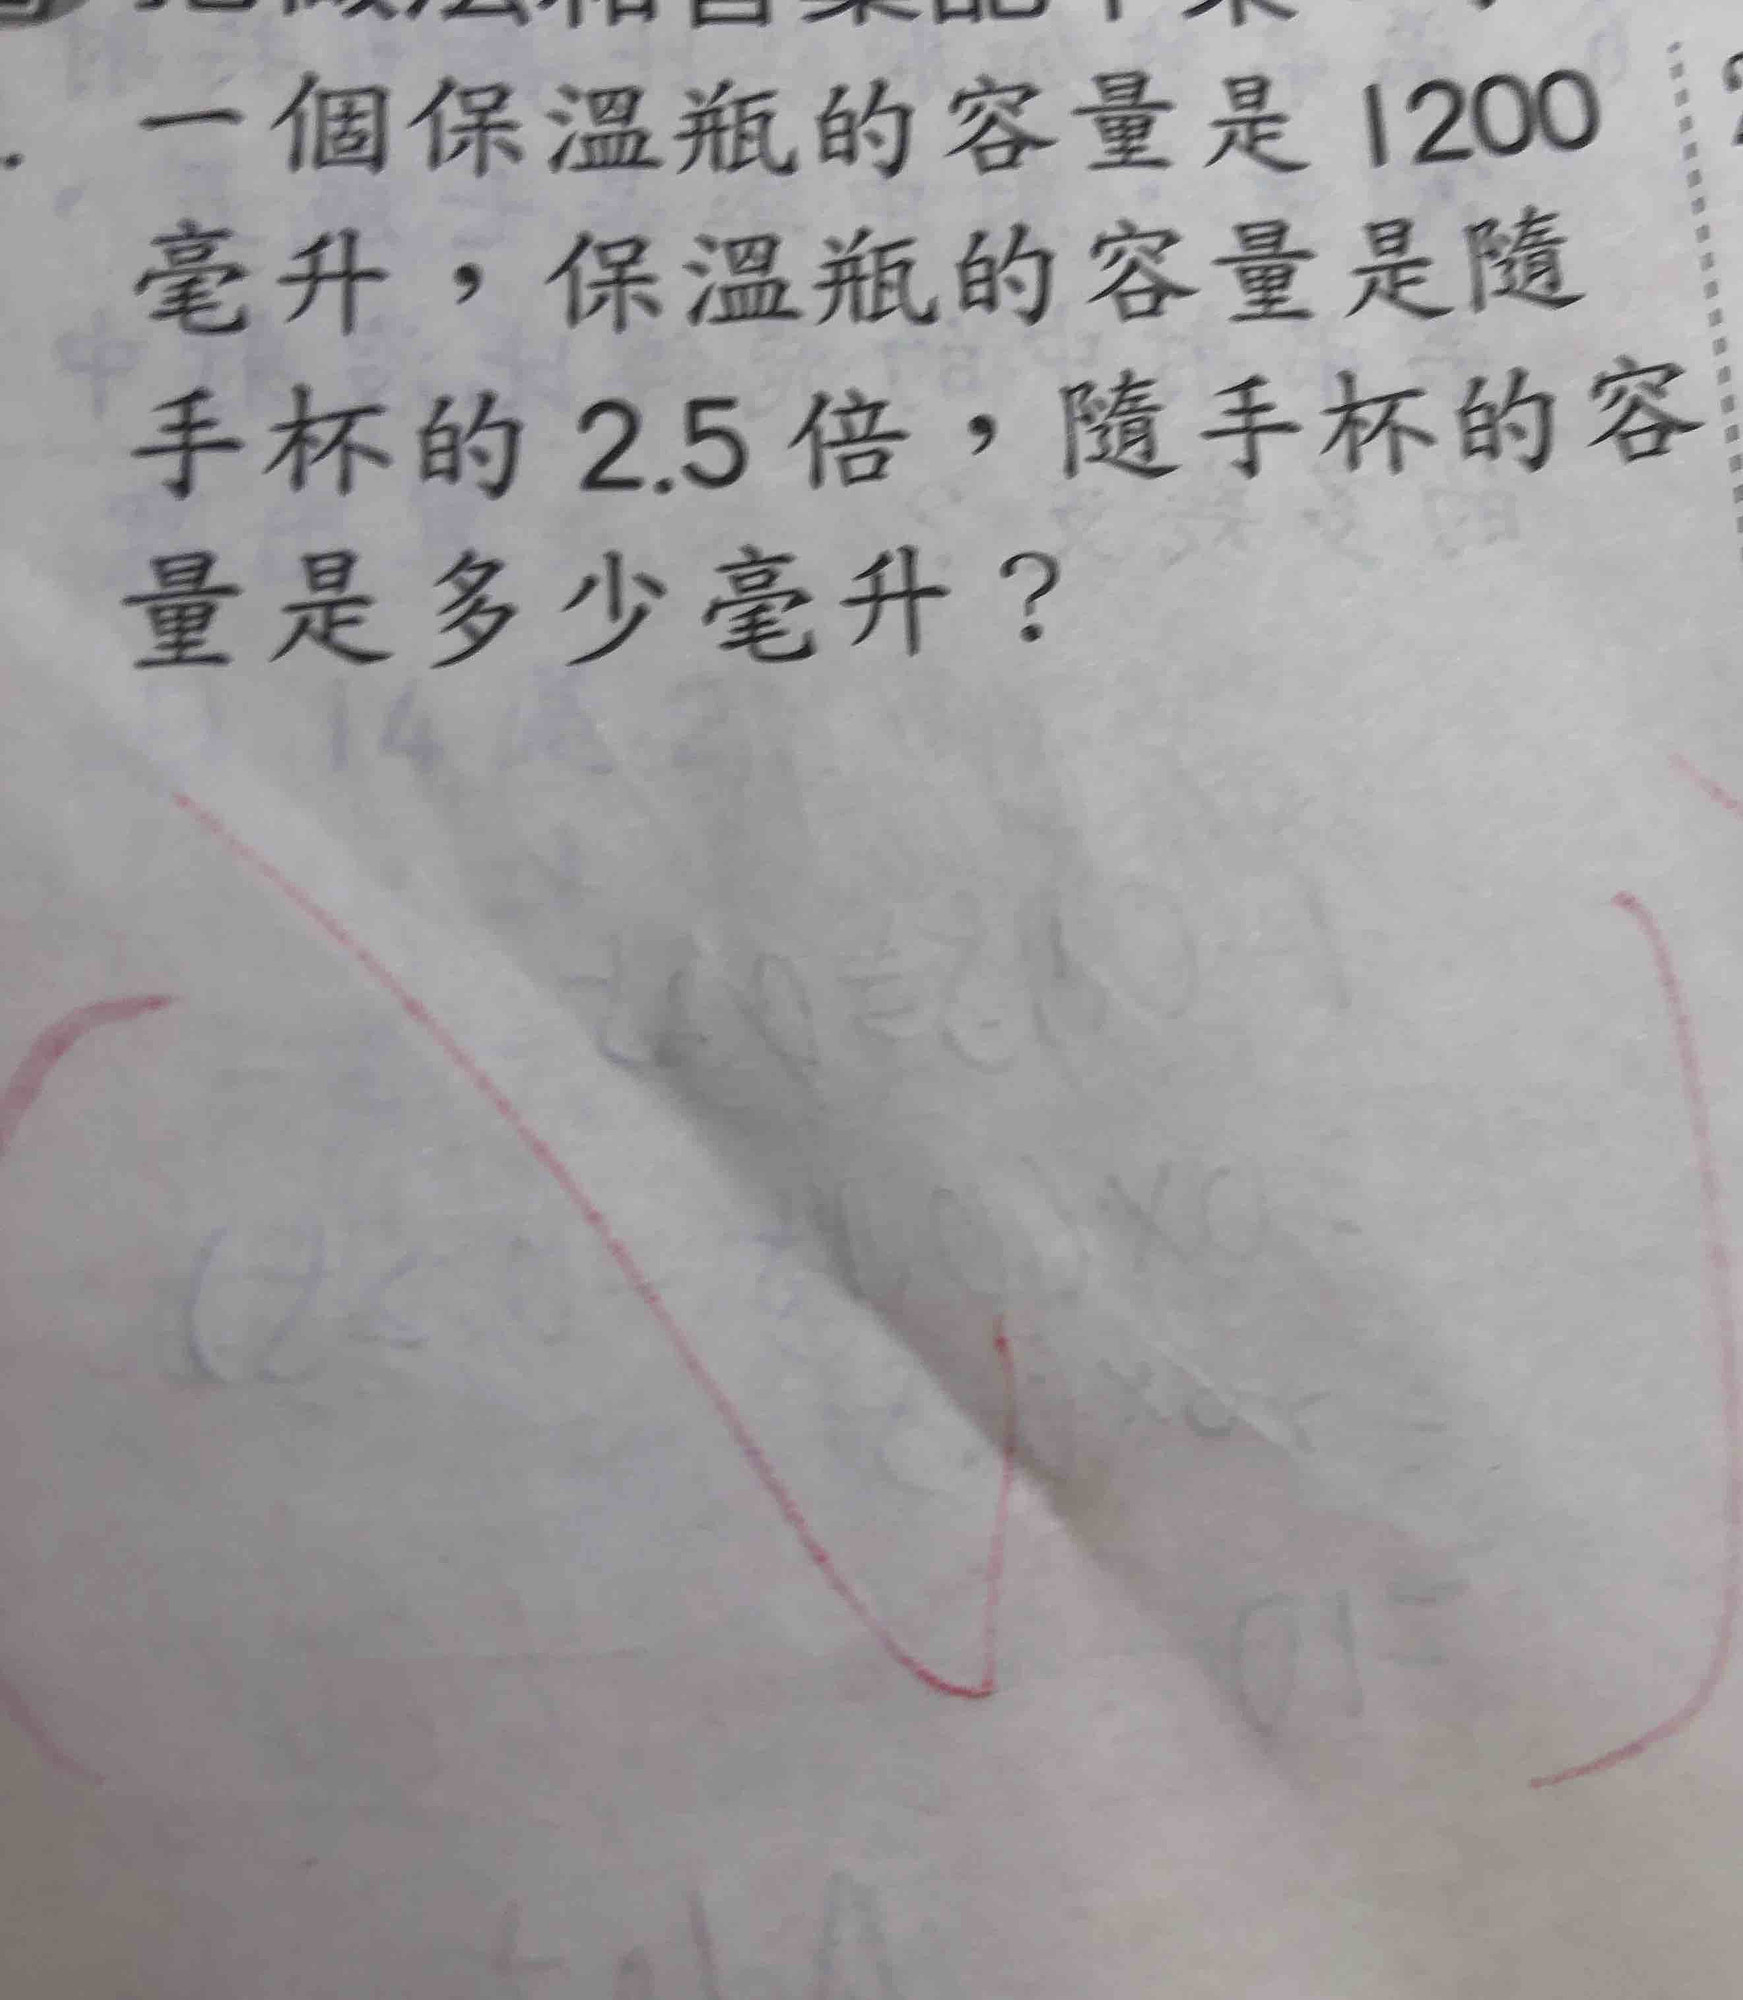 一個保溫瓶的容量是 1200
毫升，保溫瓶的容量是隨
手杯的 2.5 倍，隨手杯的容
量是多少毫升？